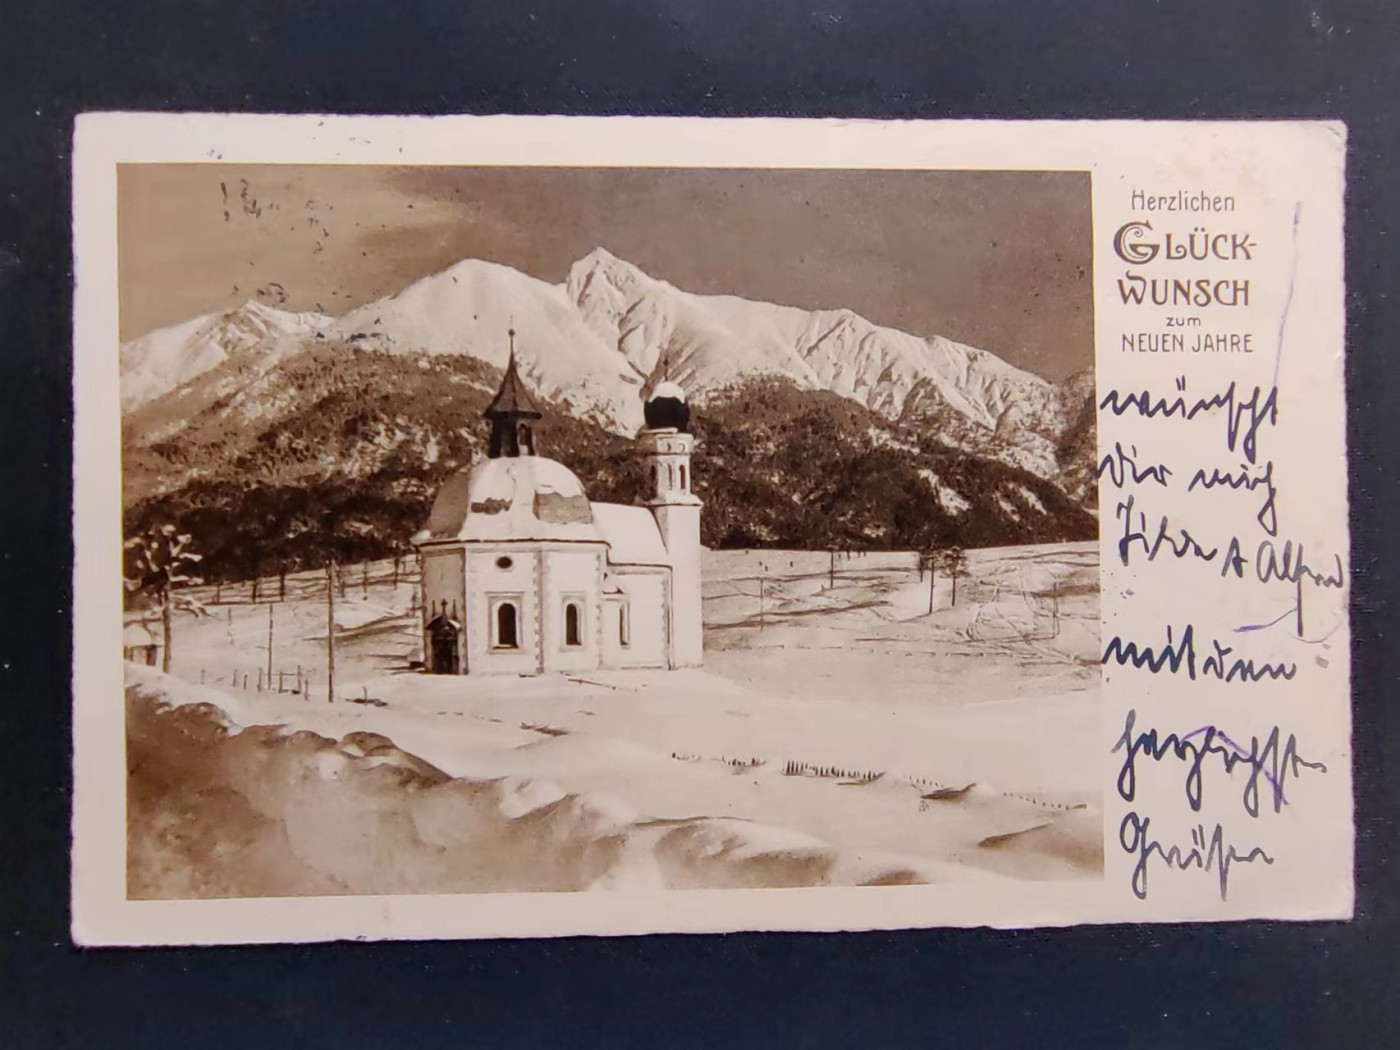 Herzlichen
GLÜCK-
WUNSCH
zum
NEUEN JAHRE
wünscht
Dir auch
Alfred
mit den
herzlichsten
Grüßen